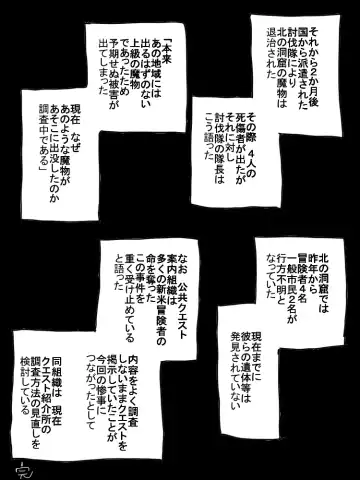 それから２か月後
国から派遣された
討伐隊により
北の洞窟の魔物は
退治された
その際 ４人の
死傷者が出たが
それに対し
討伐隊の隊長は
こう語った
「本来
あの地域には
出るはずのない
上級の魔物
であったため
予期せぬ被害が
出てしまった
現在 なぜ
あのような魔物が
あそこに出没したのか
調査中である」
北の洞窟では
昨年から
冒険者４名
一般市民２名が
行方不明と
なっていた
現在までに
彼らの遺体等は
発見されていない
なお 公共クエスト
案内組織は
多くの新米冒険者の
命を奪った
この事件を
重く受け止めている
と語った
内容をよく調査
しないままクエストを
掲示していたことが
今回の惨事に
つながったとして
同組織は 現在
クエスト紹介所の
調査方法の見直しを
検討している
完